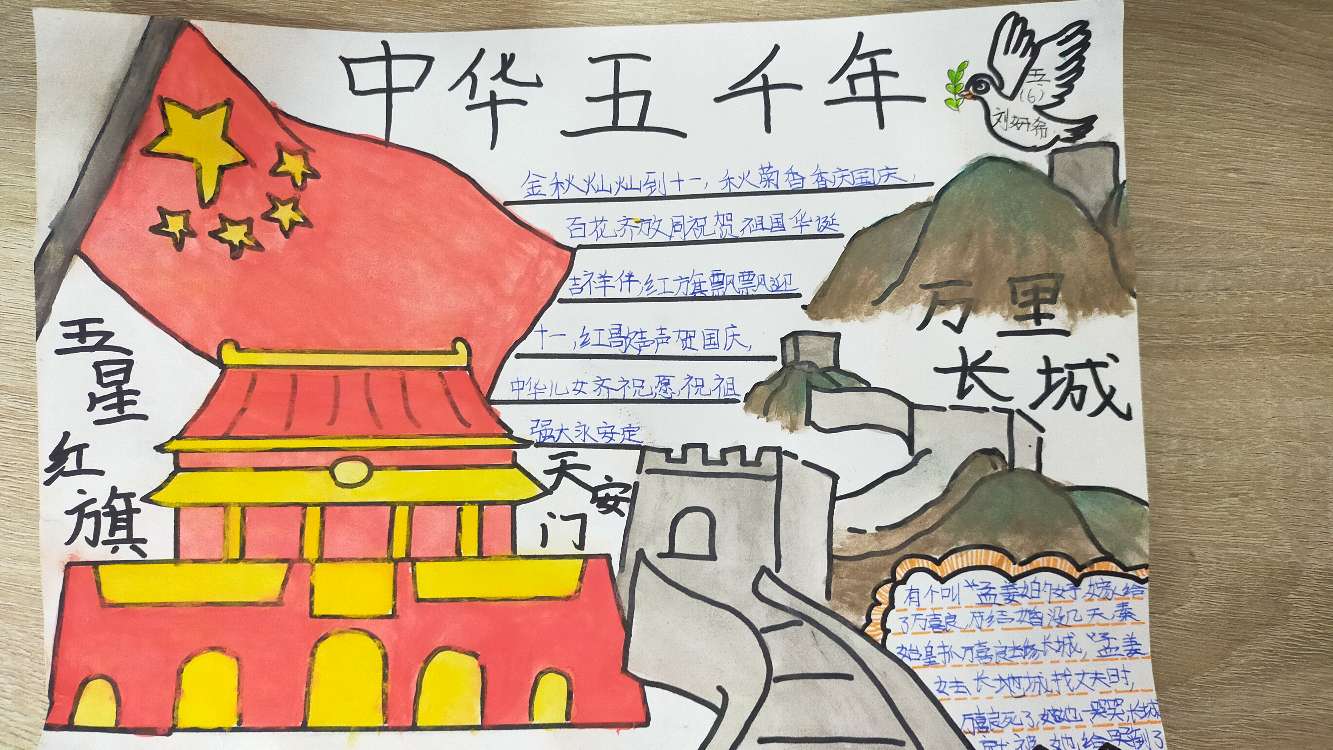 中华五千年
五
(6)
刘妍希
金秋灿灿到十一，秋菊香香庆国庆，
百花齐放同祝贺祖国华诞
吉祥伴，红旗飘飘迎
十一，红歌声声贺国庆，
中华儿女齐祝愿，祝祖
强大永安定
五星红旗
天安门
万里
长城
有个叫“孟姜女的女子嫁给
了万喜良，刚结婚没几天，秦
始皇抓万喜良去场长城，“孟姜
女去长地城找丈夫时，
万喜良死了，她也一哭哭长城